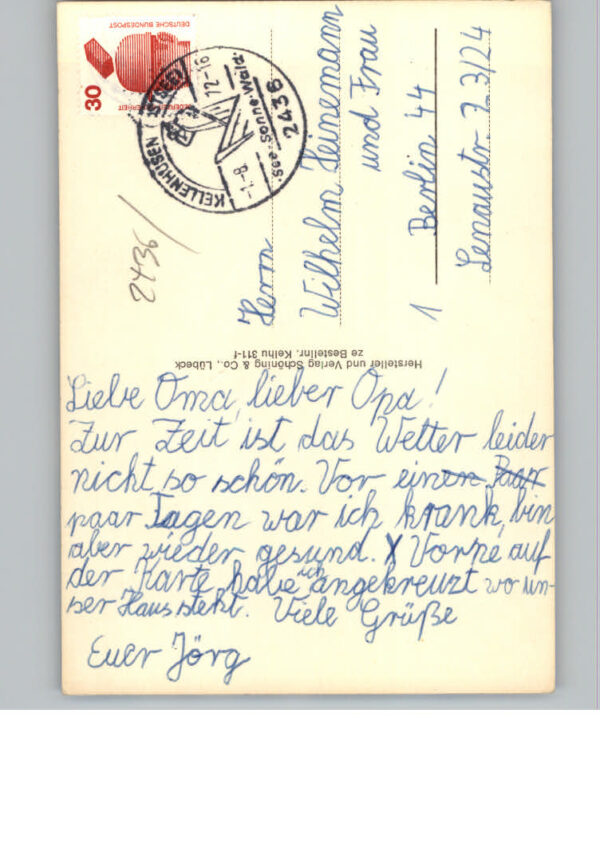 Liebe Oma, lieber Opa!
Zur Zeit ist das Wetter leider
nicht so schön. Vor einen Paar
paar Tagen war ich krank, bin
aber wieder gesund. X Vorne auf
der Karte habe ich angekreuzt wo un-
ser Haus steht. Viele Grüße
Euer Jörg
Herrn
Wilhelm Heinemann
und Frau
1 Berlin 44
Lenaustr. 7 3/24
2436/
Hersteller und Verlag Schöning & Co., Lübeck
ze Bestellnr. Kelhu 311-f
DEUTSCHE BUNDESPOST
30
2436
KELLENHUSEN